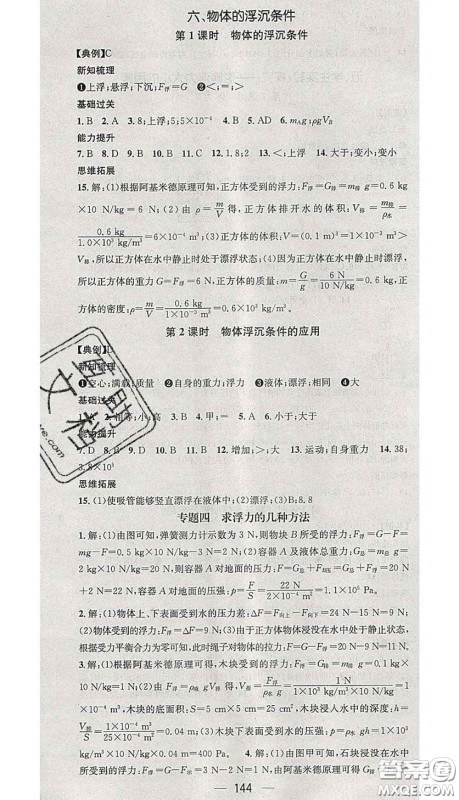 六、物体的浮沉条件
第1课时 物体的浮沉条件
【典例】C
新知梳理
❶上浮;悬浮;下沉;F浮=G ❷<;=;>
基础过关
1. B 2. A 3. 8;上浮;5;5×10⁻⁴ 4. BD 5. AD 6. mAg;ρgVB
能力提升
7. B 8. D 9. B 10. D 11. C 12. 1.8;2 13. <;上浮 14. 大于;变小;变小
思维拓展
15. 解:(1)根据阿基米德原理可知,正方体受到的浮力:F浮=G排=m排g=0.6 kg
×10 N/kg=6 N;(2)由 ρ=m/V 得,正方体排开水的体积:V排=m排/ρ水=
0.6 kg/1.0×10³ kg/m³=6×10⁻⁴ m³;(3)正方体的体积:V=(0.1 m)³=1×10⁻³ m³>
V排,所以正方体在水中静止时处于漂浮状态;(4)因为正方体在水中静止时漂浮,
所以正方体的重力 G=F浮=6 N,正方体的质量:m=G/g=6 N/10 N/kg=0.6 kg,正方
体的密度:ρ=m/V=0.6 kg/1×10⁻³ m³=0.6×10³ kg/m³
第2课时 物体浮沉条件的应用
【典例】
新知梳理
❶空心;满载;质量 ❷自身的重力;浮力 ❸液体;漂浮;相同 ❹大
基础过关
等;小;高 3. B 4. 甲;= 5. A 6. 小于;大于
能力提升
7. D 8. B 9. D 10. B 11. D 12. 增大;大 13. 运动;自身重力 14. 38;
3.8×10³
思维拓展
15. (1)使吸管能够竖直漂浮在液体中;(2)漂浮;(3)B;8.8
专题四 求浮力的几种方法
1. 解:(1)由图可知,弹簧测力计示数为 3 N,则物块 B 所受的浮力:F浮=G−F=
mg−F=0.5 kg×10 N/kg−3 N=2 N;(2)容器 A 及液体总重力:G总=m总g=2 kg×
10 N/kg=20 N,则容器 A 对地面的压力:F=G总+F压=G总+F浮=20 N
+2 N=22 N,容器 A 对地面的压强:p=F/S=22 N/2×10⁻² m²=1.1×10³ Pa。
2. 解:(1)物体上、下表面受到水的压力差:ΔF=F向上−F向下=24 N−15 N=9 N;
(2)物体受到的浮力:F浮=ΔF=9 N;(3)由于正方体物体浸没在水中处于静止状态,
根据受力平衡合力为零可知,此时绳子对物体的拉力:F=G−F浮=20 N−9 N=11 N。
3. 解:(1)根据阿基米德原理可知,木块受到的浮力:F浮=G排=m排g=0.1 kg×
10 N/kg=1 N;(2)由 F浮=ρ水gV排得,V排=F浮/ρ水g=1 N/1×10³ kg/m³×10 N/kg=1×
10⁻⁴ m³,木块的底面积:S=5 cm×5 cm=25×10⁻⁴ m²,木块浸入水中的深度:h=
V排/S=1×10⁻⁴ m³/25×10⁻⁴ m²=0.04 m;(3)木块下表面受到水的压强:p=ρ水gh=1×10³
kg/m³×10 N/kg×0.04 m=400 Pa。 4. 解:(1)由图可知,石块浸没在水中所受
的浮力:F浮=G−F拉=20 N−12 N=8 N;(2)由阿基米德原理可得 G排=F浮=8 N,
144